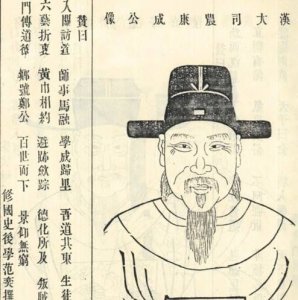 漢大司農康成公像
贊曰
入關訪道 師事馬融 學成歸里 吾道共東 生徒
六藝折衷 黃巾相約 避跡斂踪 德化所及 叛賊
門傳道德 鄉號鄭公 百世而下 景仰無窮
修國史後學范奕撰